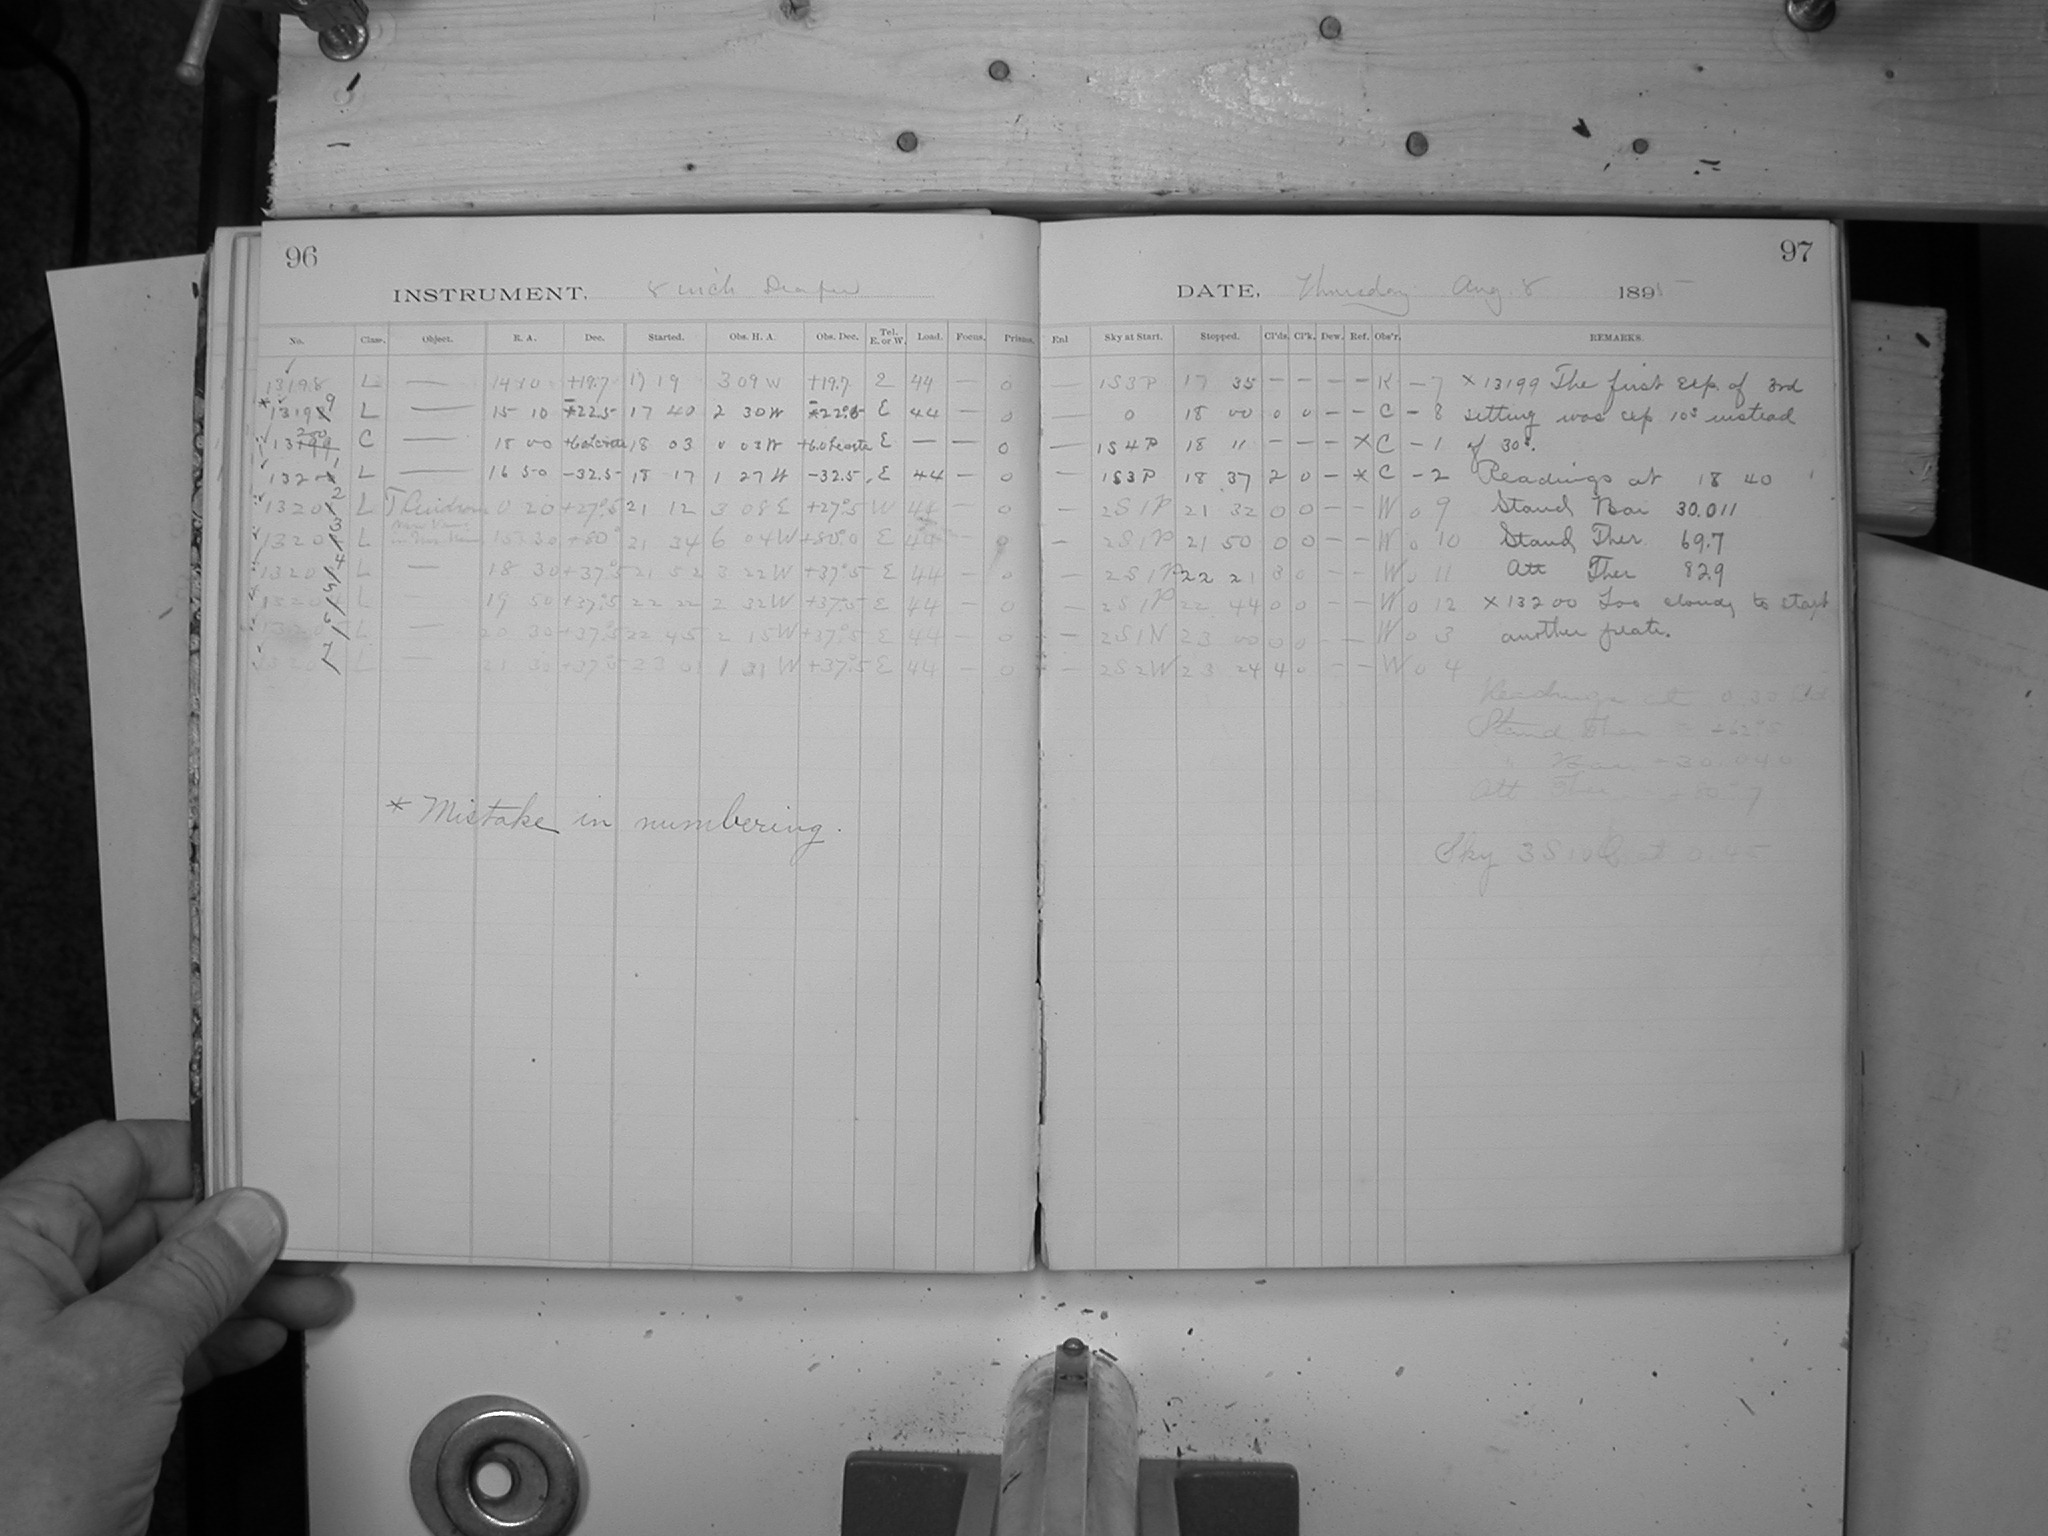 96
INSTRUMENT. 8 inch Draper
No. Class. Object. R. A. Dec. Started. Obs. H. A. Obs. Dec. Tel. E. or W. Load. Focus. Prisms.
13198 L — 14 10 +19.7 17 19 3 09 W +19.7 E 44 — 0
*13199 L — 15 10 -22.5 17 40 2 30 W -22.5 E 44 — 0
13200 C — 18 00 18 03 0 03 W E — — 0
13201 L — 16 50 -32.5 18 17 1 27 W -32.5 E 44 — 0
13202 L 0 20 +27°.5 21 12 3 08 E +27°.5 W 44
13203 L 15 30 +30° 21 34 6 04 W +30°.0 E
13204 L — 18 30 +37°.5 21 52 3 22 W +37°.5 E 44 — 0
13205 L — 19 50 +37°.5 22 22 2 32 W +37°.5 E 44 — 0
L — 20 30 +37°.5 22 45 2 15 W +37°.5 E 44 — 0
L — 21 30 +37°.5 23 01 1 31 W +37°.5 E 44 — 0
* Mistake in numbering.
97
DATE, Thursday Aug 8 1895
Enl Sky at Start. Stopped. Cl'ds. Cl'k. Dew. Ref. Obs'r. REMARKS.
— 1S3P 17 35 — — — — K — 7 × 13199 The first exp. of 3rd
— 0 18 00 0 0 — — C — 8 setting was exp 10s instead
— 1S4P 18 11 — — — × C — 1 of 30s.
— 1S3P 18 37 2 0 — × C — 2 Readings at 18 40
— 2S1P 21 32 0 0 — — W 0 9 Stand Bar 30.011
— 2S1P 21 50 0 0 — — W 0 10 Stand Ther 69.7
— 2S1P 22 21 3 0 — — W 0 11 Att Ther 82.9
— 2S1P 22 44 0 0 — — W 0 12 × 13200 Too cloudy to start
— 2S1N 23 00 0 0 — — W 0 3 another plate.
— 2S2W 23 24 4 0 — — W 0 4
Readings at 0 30
Stand Ther = +62°.5
" Bar = 30.040
Att Ther = +80°.7
Sky at 0 45